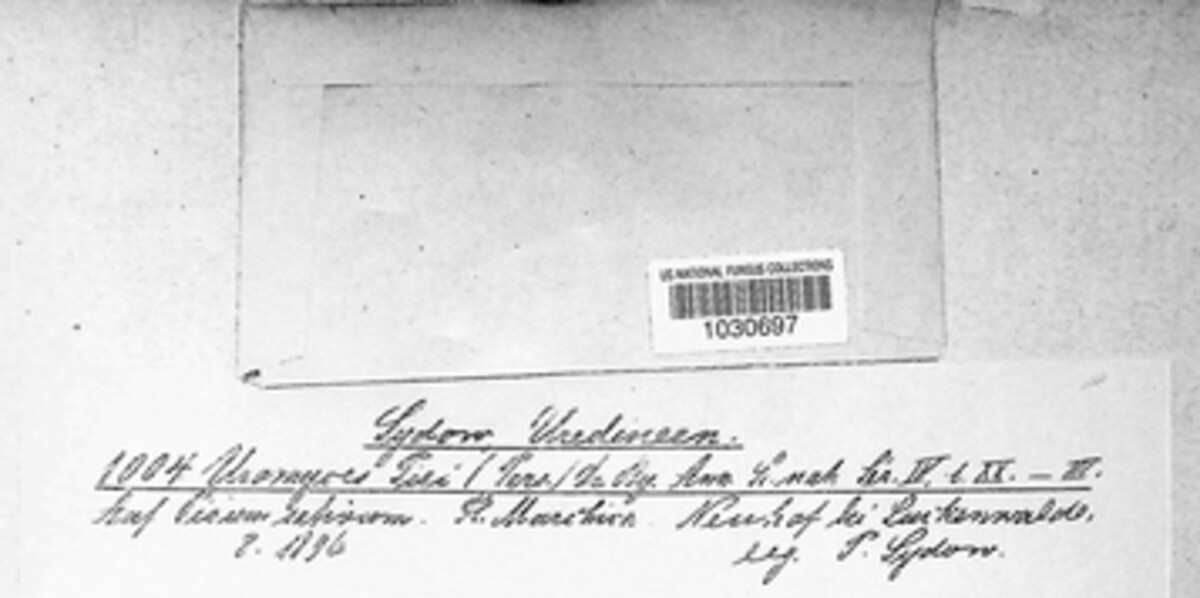 US NATIONAL FUNGUS COLLECTIONS
1030697
Sydow, Uredineen.
1004 Uromyces Pisi (Pers.) De By. Ann. Sc. nat. Sér. IV, t. XX. — III.
Auf Pisum sativum. Pl. Marchica. Neuhof bei Luckenwalde,
8. 1896
leg. P. Sydow.